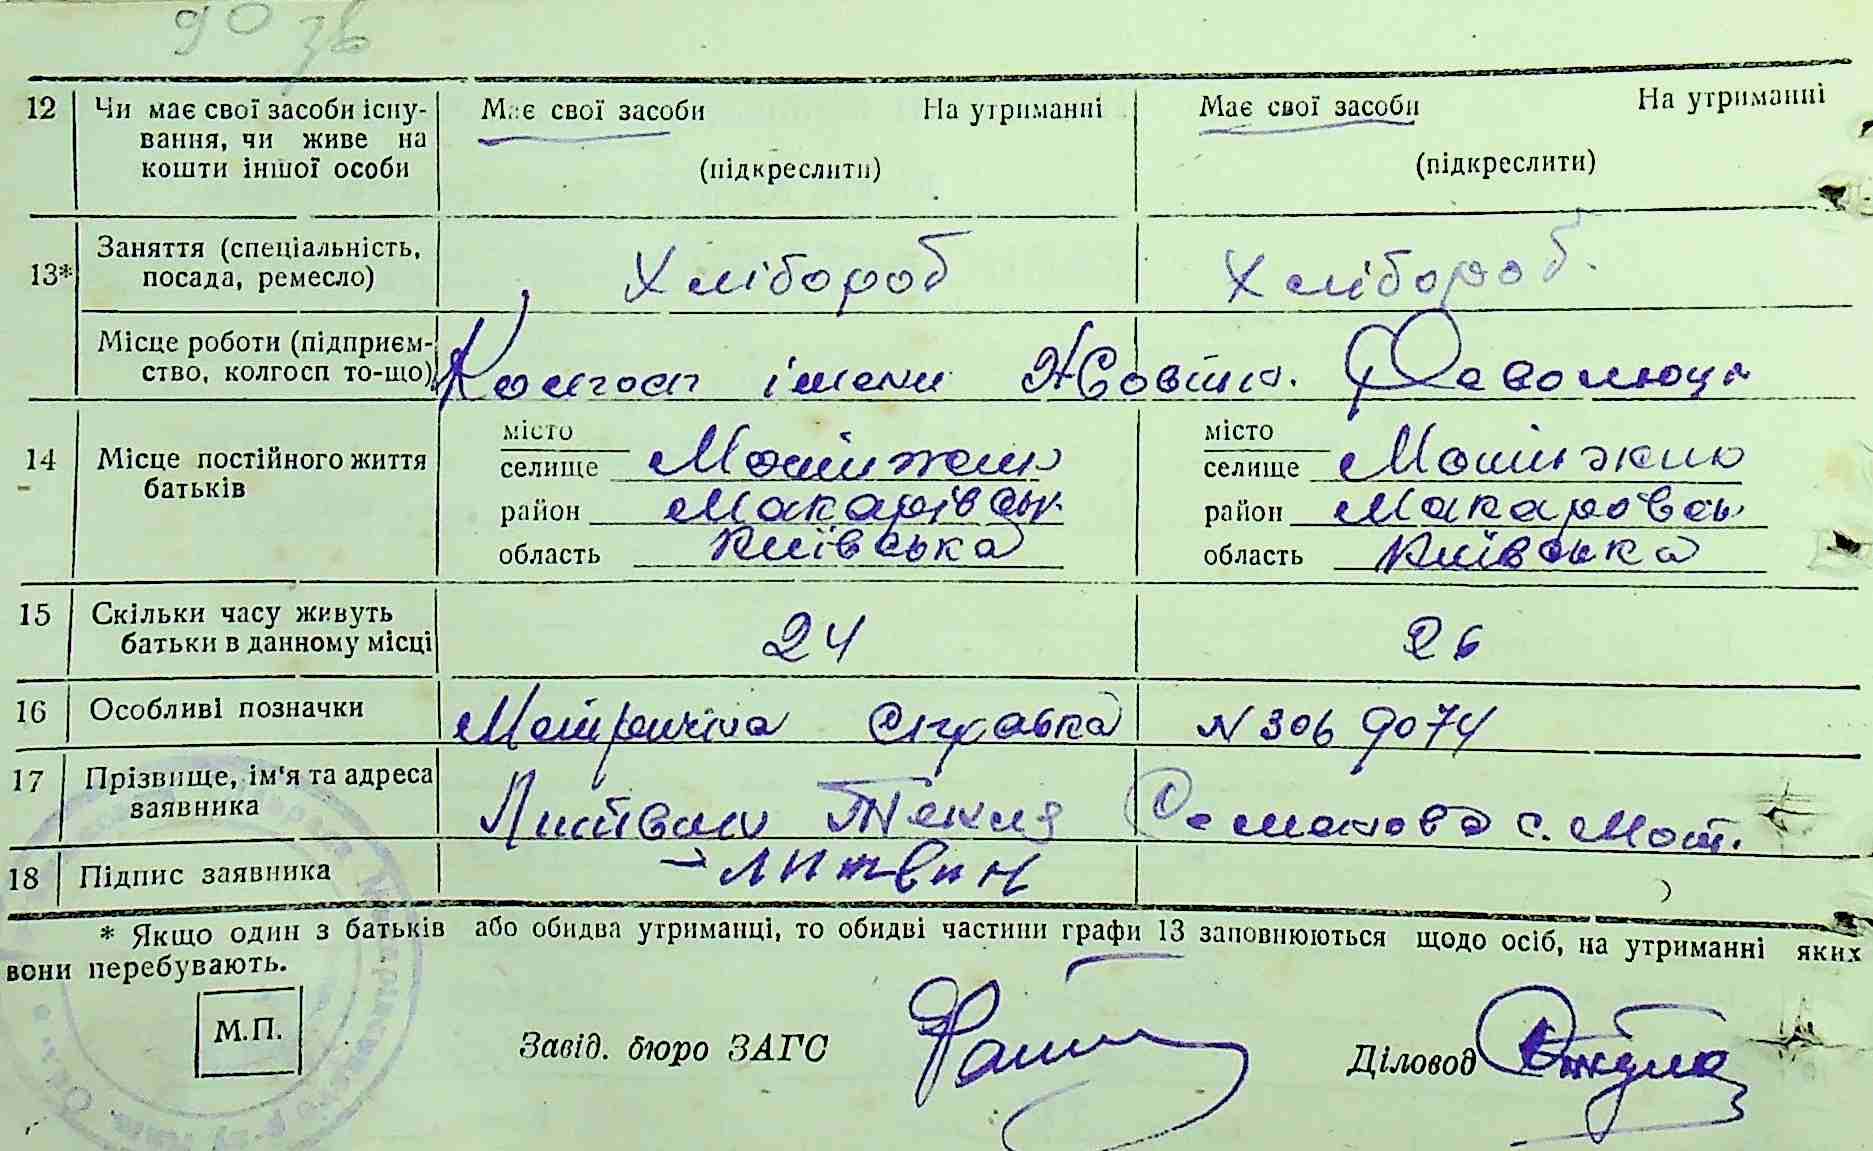 90 зв
12 Чи має свої засоби існу- Має свої засоби На утриманні Має свої засоби На утриманні
вання, чи живе на
кошти іншої особи (підкреслити) (підкреслити)
13* Заняття (спеціальність, Хлібороб Хлібороб.
посада, ремесло)
Місце роботи (підприєм- Колгосп імени Жовтн. Революци
ство, колгосп то-що)
14 Місце постійного життя місто місто
батьків селище Мотижин селище Мотижин
район Макарівськ. район Макаровськ
область Київська область Київська
15 Скільки часу живуть 24 26
батьки в данному місці
16 Особливі позначки Метрична справка N 306 9074
17 Прізвище, ім'я та адреса Литвин Текля Романова с. Мот.
заявника
18 Підпис заявника Литвин
* Якщо один з батьків або обидва утриманці, то обидві частини графи 13 заповнюються щодо осіб, на утриманні яких
вони перебувають.
М.П. Завід. бюро ЗАГС Діловод